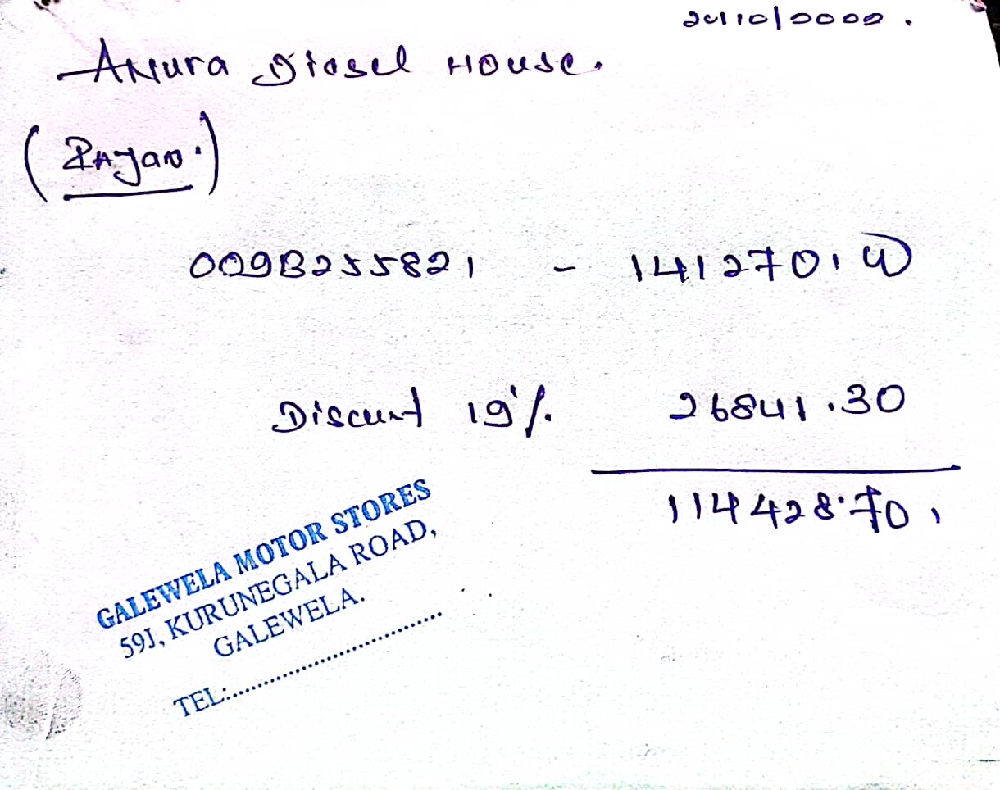 Anura Diasel House.
(Rayan.)
009B255821 - 141270.00
Discunt 19% 26841.30
114428.70
GALEWELA MOTOR STORES
591, KURUNEGALA ROAD,
GALEWELA.
TEL:................................